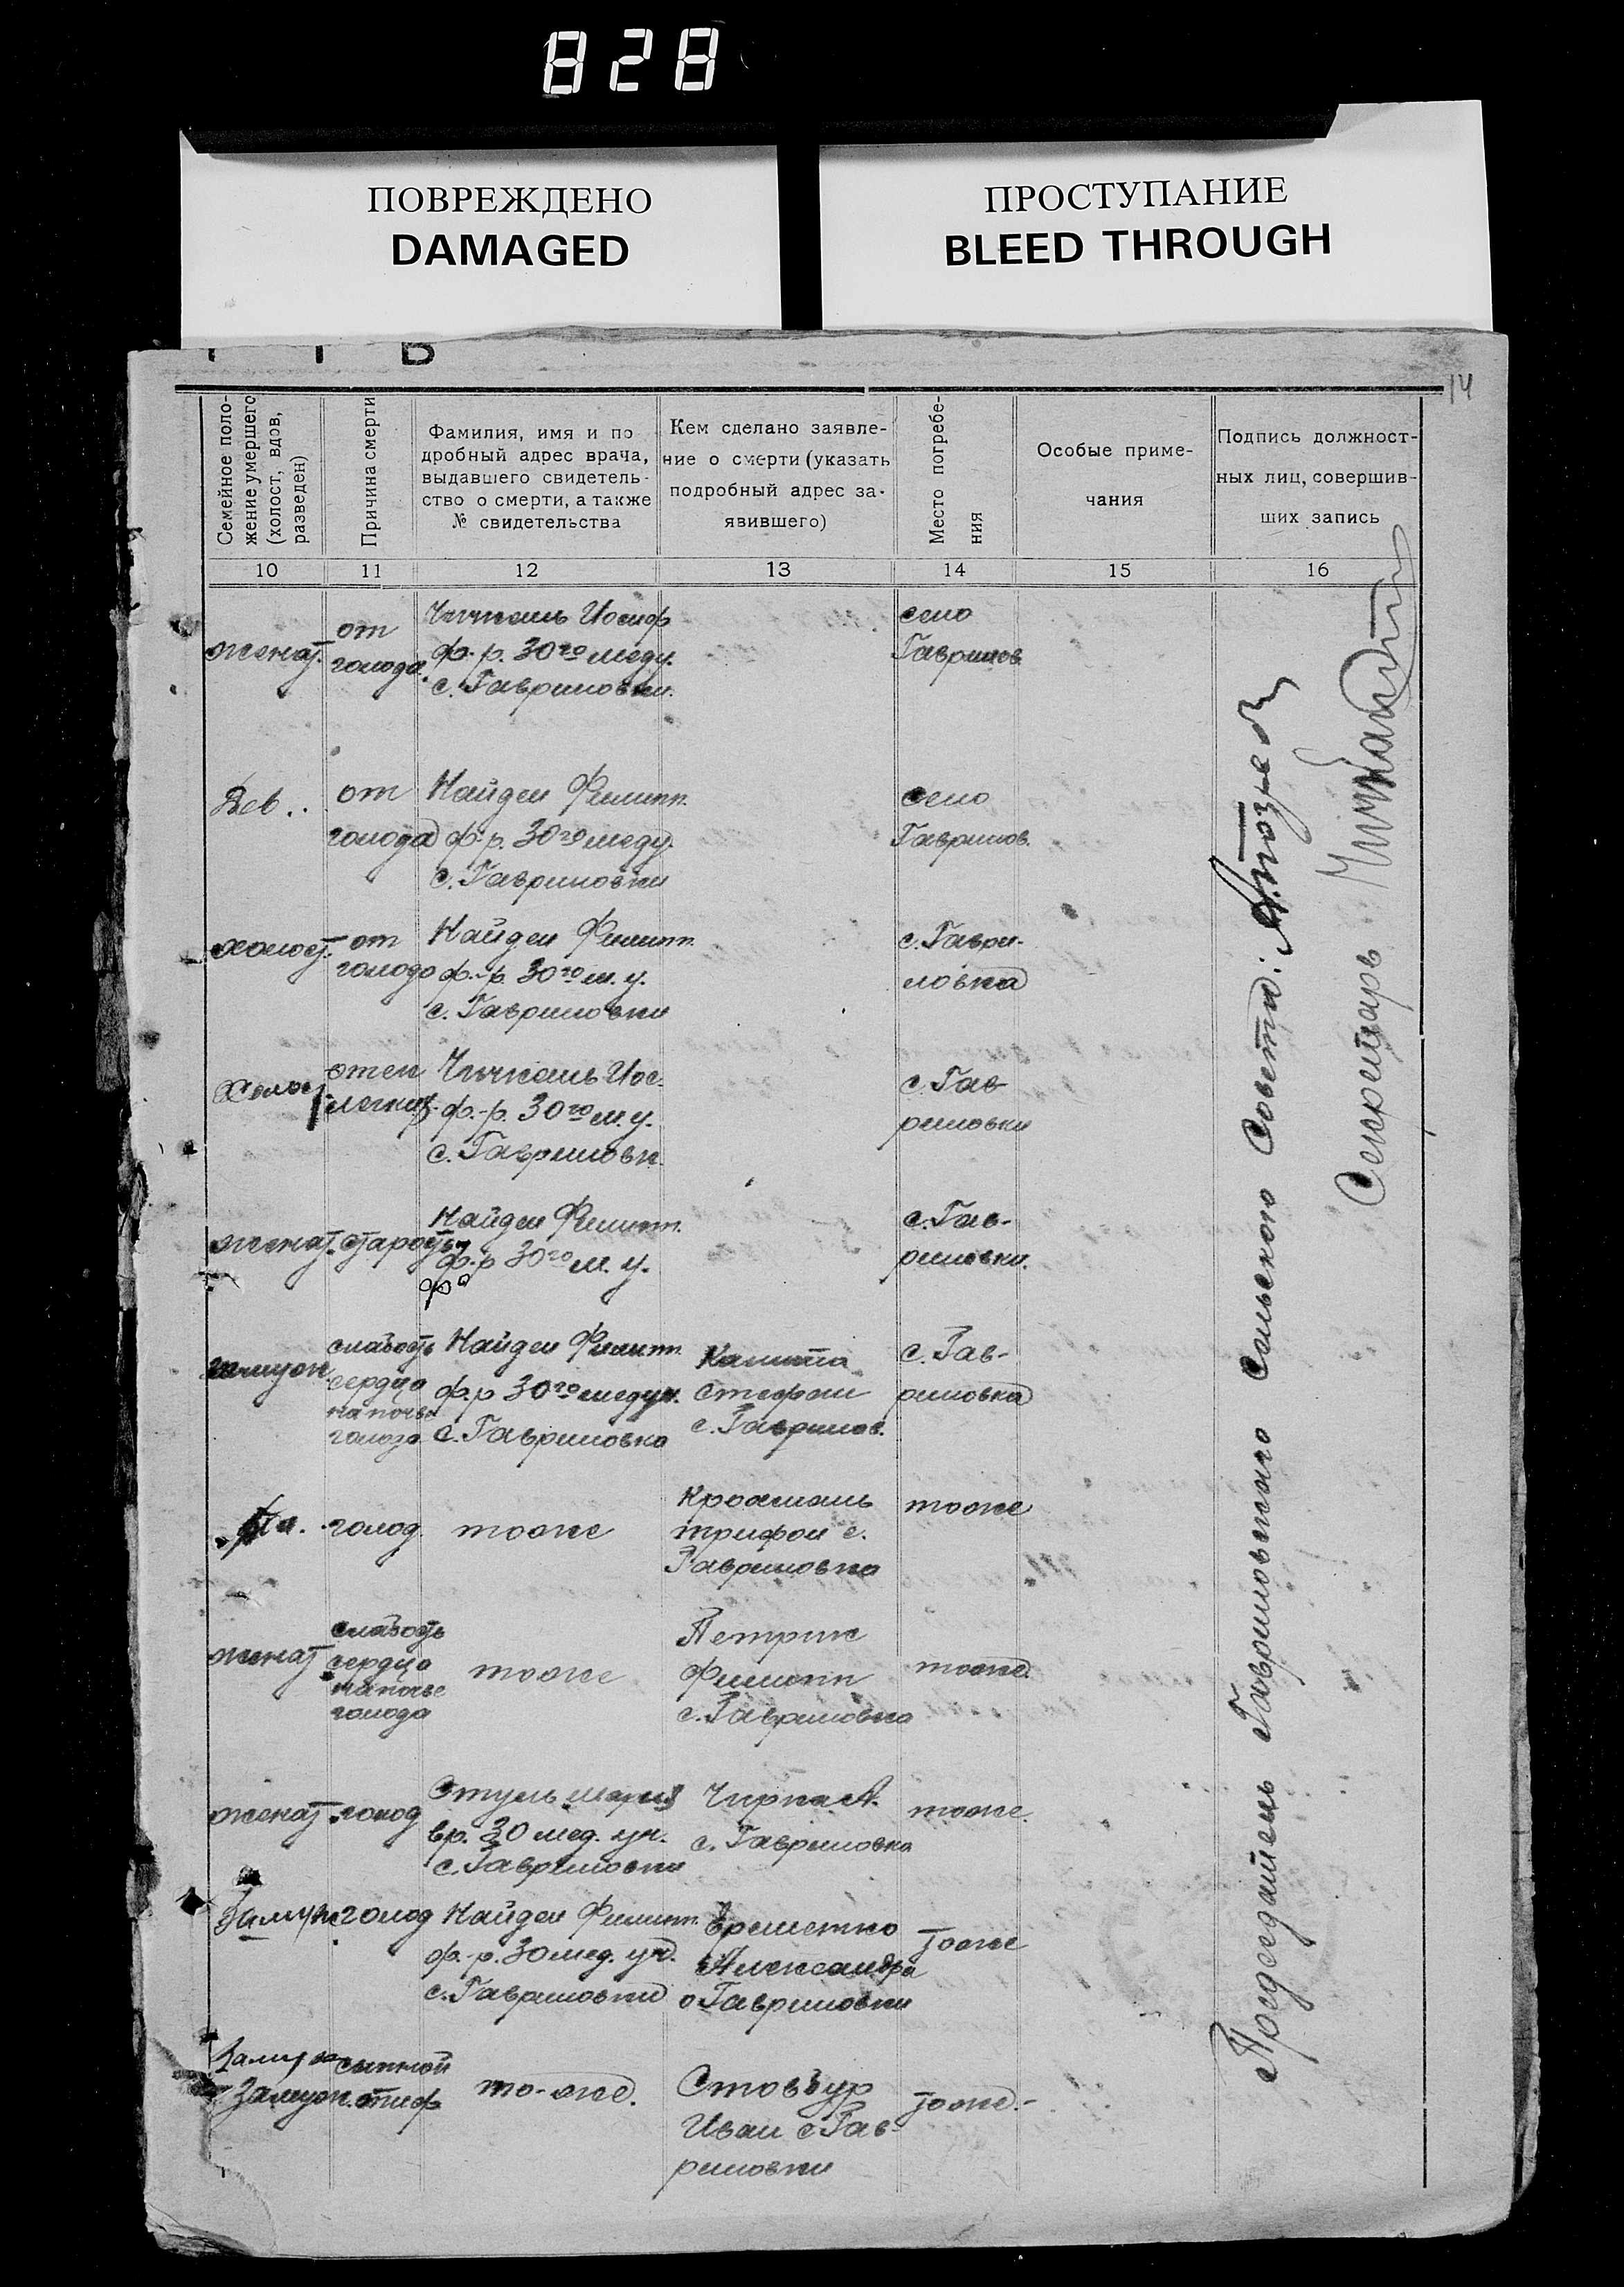 828
ПОВРЕЖДЕНО
DAMAGED
ПРОСТУПАНИЕ
BLEED THROUGH
14
Семейное поло-
жение умершего
(холост, вдов,
разведен)
Причина смерти
Фамилия, имя и по
дробный адрес врача,
выдавшего свидетель-
ство о смерти, а также
№ свидетельства
Кем сделано заявле-
ние о смерти (указать
подробный адрес за-
явившего)
Место погребе-
ния
Особые приме-
чания
Подпись должност-
ных лиц, совершив-
ших запись
10 11 12 13 14 15 16
женат.
от
голода.
Иосиф
ф.-р. 30го меду.
с. Гавриловки.
село
Гаврилов.
Дев.
от
голода
Найден Филипп.
ф.-р. 30го меду.
с. Гавриловки
село
Гаврилов.
холост.
от
голода
Найден Филипп.
ф.-р. 30го м. у.
с. Гавриловки
с. Гаври-
ловка
Холост
отек
легких.
Иос.
ф.-р. 30го м. у.
с. Гавриловк.
с. Гав-
риловки
женат.
старость
Найден Филипп.
ф.-р 30го м. у.
с. Гав-
риловки.
слабость
сердца
на почве
голода.
Найден Филипп.
ф.р 30го медуч.
с. Гавриловка
Стефан
с. Гаврилов.
с. Гав-
риловка
голод.
тоже
Трифон с.
Гавриловка
тоже
женат
слабость
сердца
на почве
голода
тоже
Петрик
Филипп
с. Гавриловка
тоже.
женат.
голод
Стуль
вр. 30 мед. уч.
с. Гавриловки
Чирка А.
с. Гавриловка
тоже.
Замуж
голод
Найден Филипп.
ф.-р. 30 мед. уч.
с. Гавриловки
Александра
с Гавриловки
тоже
Замуж.
сыпной
тиф
то-же.
Стовбур
Иван с Гав-
риловки
тоже.-
Председатель Гавриловского Сельского Совета:
Секретарь